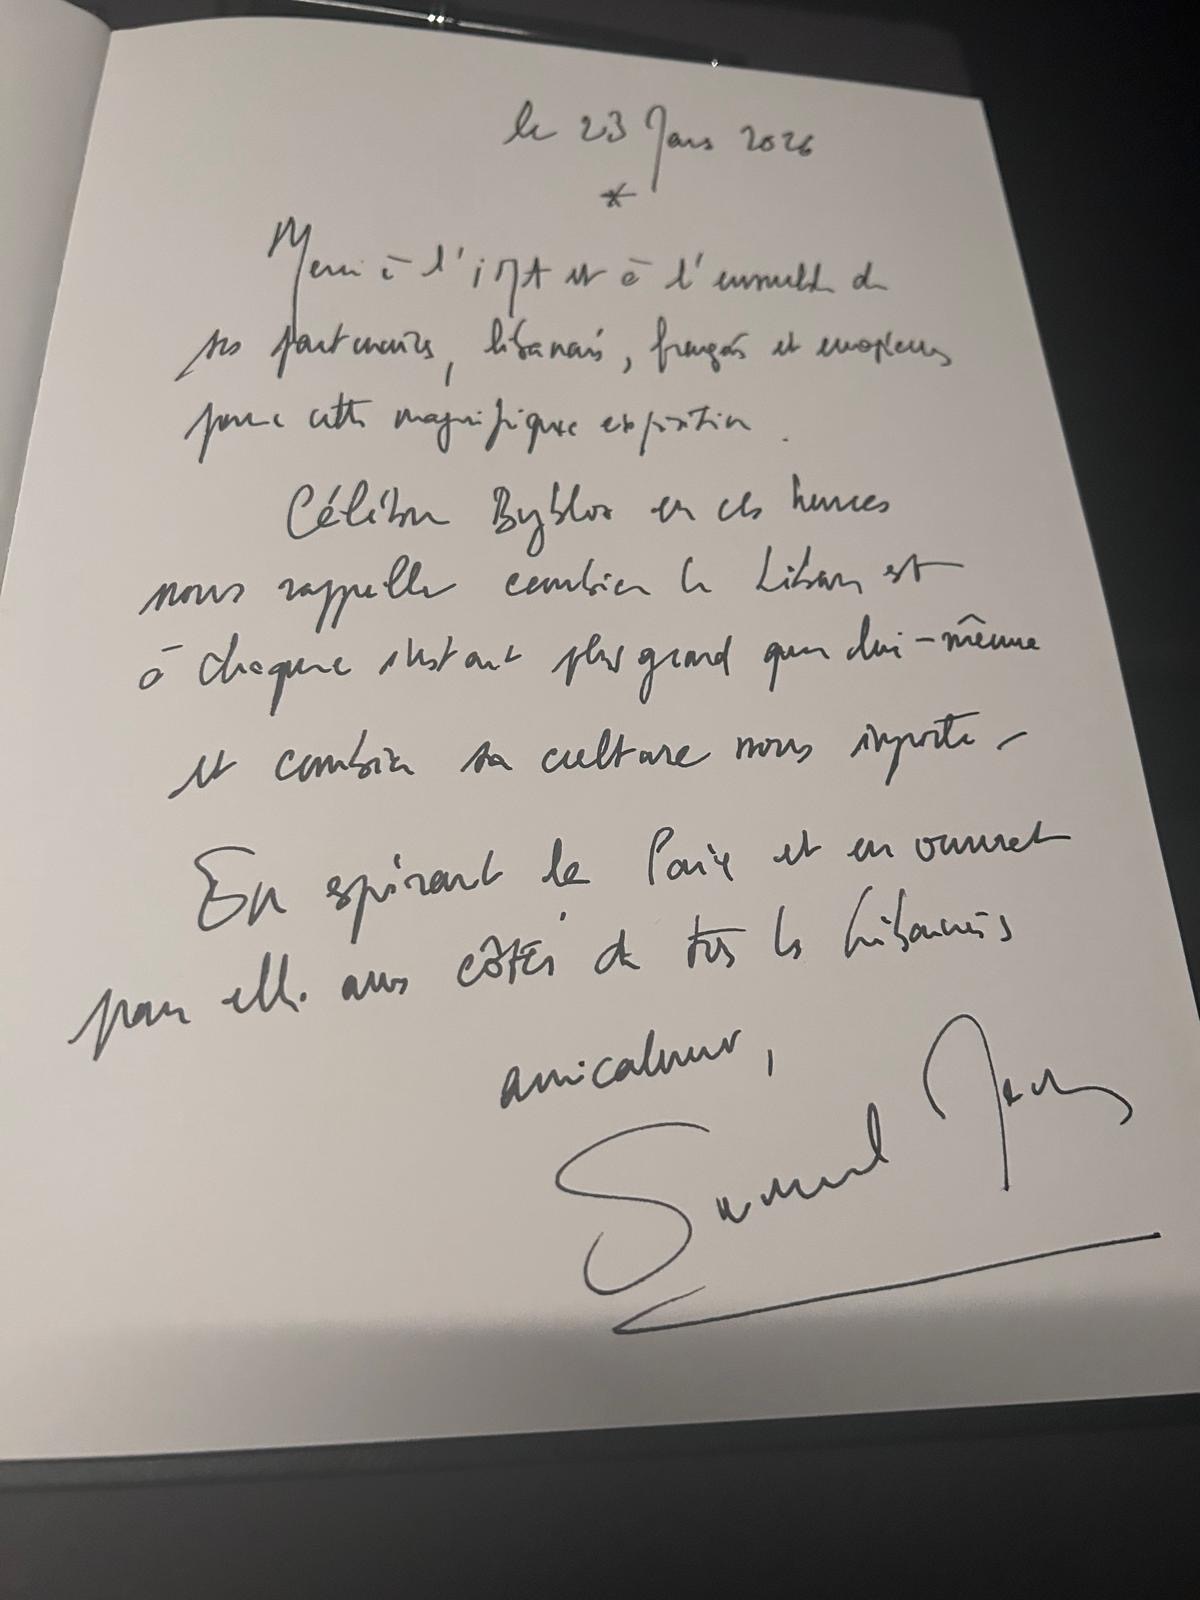 le 23 Mars 2026
*
Merci à l'iMA et à l'ensemble de
ses partenaires, libanais, français et européens
pour cette magnifique exposition.
Célébrer Byblos en ces heures
nous rappelle combien le Liban est
à chaque instant plus grand que lui-même
et combien sa culture nous importe -
En espérant la Paix et en œuvrant
pour elle aux côtés de tous les Libanais
amicalement,